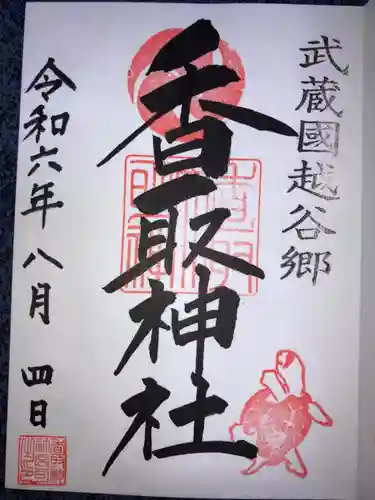 武蔵國越谷郷
香取神社
令和六年八月四日